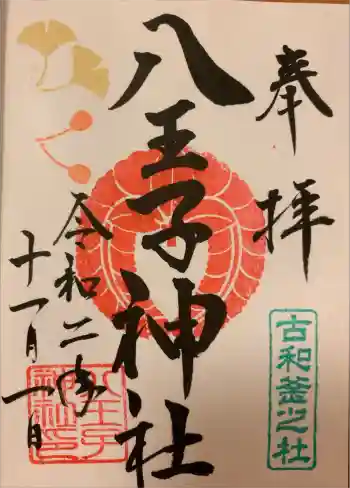 奉拝
古和釜之社
八王子神社
令和二年
十一月一日
八王子
神社印